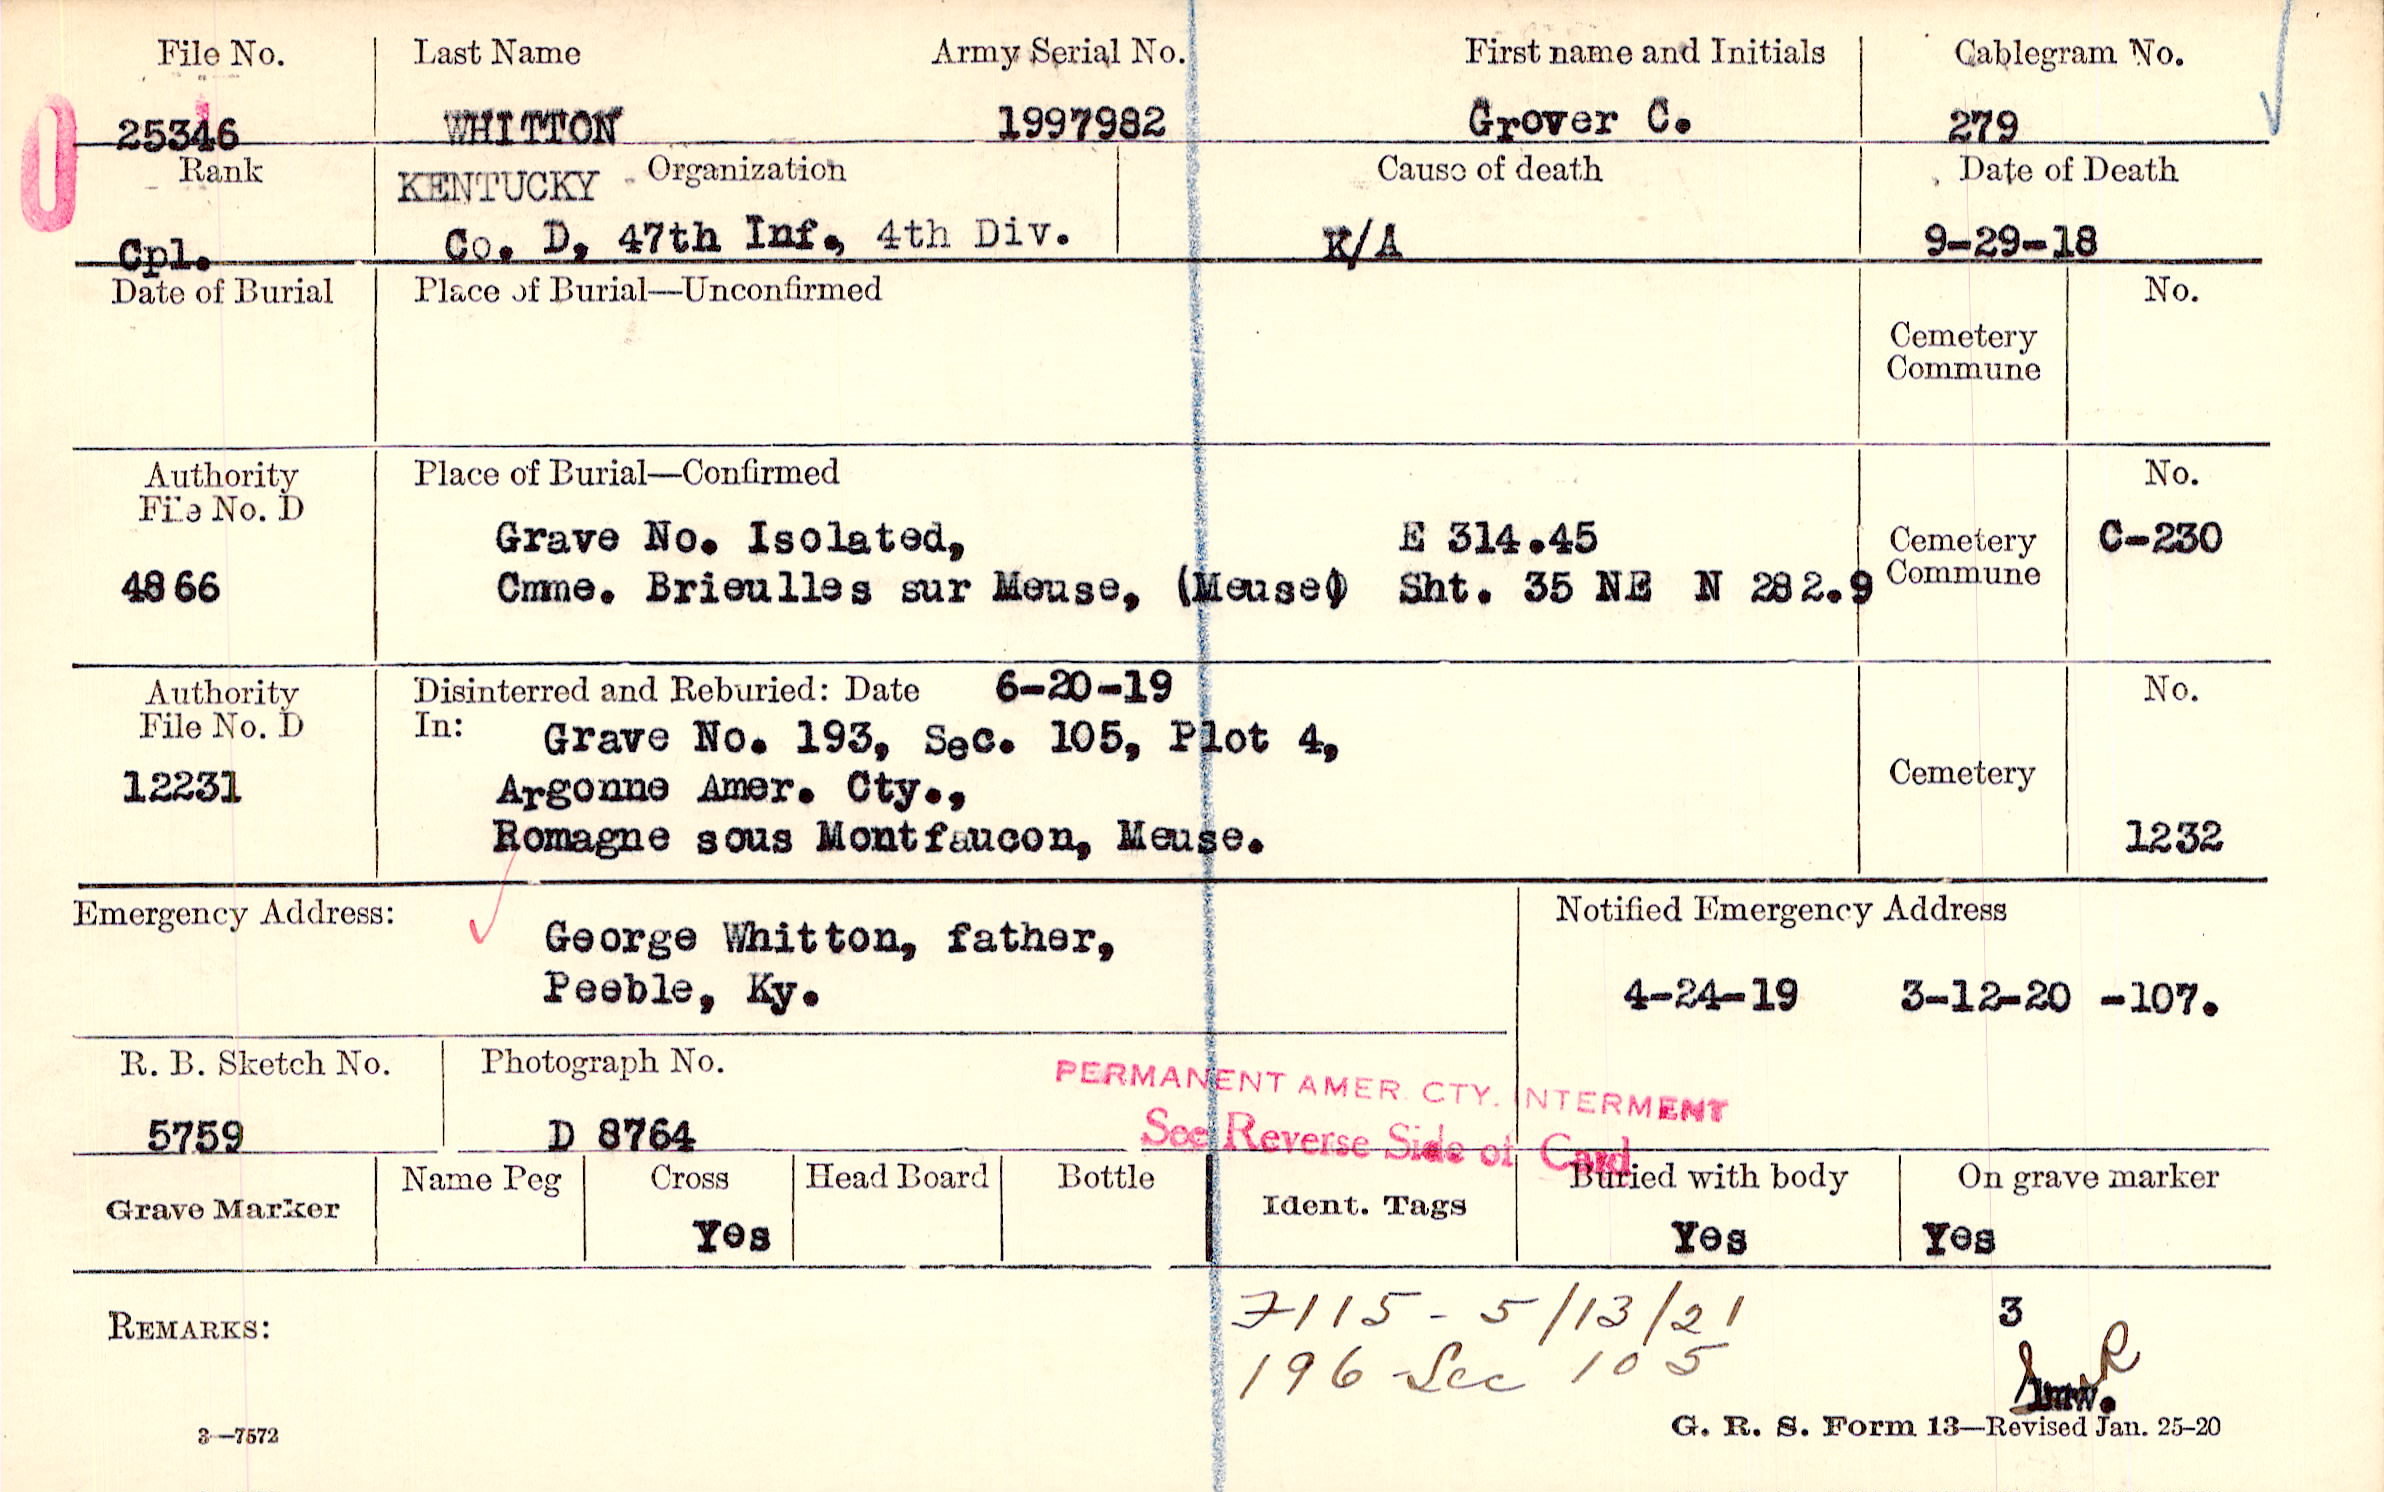 File No. Last Name Army Serial No. First name and Initials Cablegram No.
25346 WHITTON 1997982 Grover C. 279
Rank KENTUCKY Organization Cause of death Date of Death
Cpl. Co. D, 47th Inf., 4th Div. K/A 9-29-18
Date of Burial Place of Burial—Unconfirmed No.
Cemetery
Commune
Authority Place of Burial—Confirmed No.
File No. D
Grave No. Isolated, E 314.45 Cemetery C-230
4866 Cmne. Brieulles sur Meuse, (Meuse) Sht. 35 NE N 282.9 Commune
Authority Disinterred and Reburied: Date 6-20-19 No.
File No. D In: Grave No. 193, Sec. 105, Plot 4,
12231 Argonne Amer. Cty., Cemetery
Romagne sous Montfaucon, Meuse. 1232
Emergency Address: Notified Emergency Address
George Whitton, father,
Peeble, Ky. 4-24-19 3-12-20 -107.
R. B. Sketch No. Photograph No.
PERMANENT AMER. CTY. INTERMENT
5759 D 8764 See Reverse Side of Card
Grave Marker Name Peg Cross Head Board Bottle Ident. Tags Buried with body On grave marker
Yes Yes Yes
7115 - 5/13/21 3
REMARKS:
196 - Sec 105
lmw.
3—7572 G. R. S. Form 13—Revised Jan. 25-20